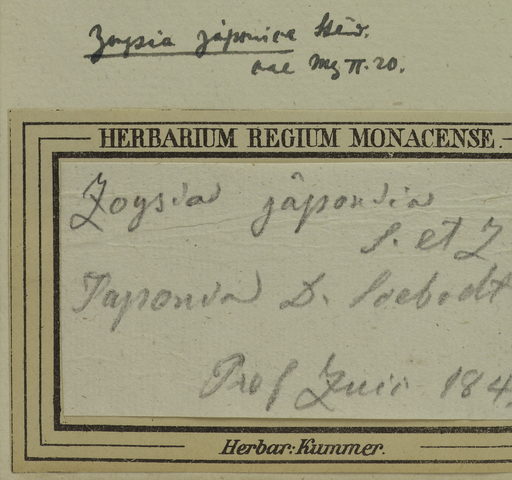 Zoysia japonica Steud.
HERBARIUM REGIUM MONACENSE.
Zoysia japonica
S. et Z
Japonia D. Siebold
Prof Zucc 184
Herbar: Kummer.